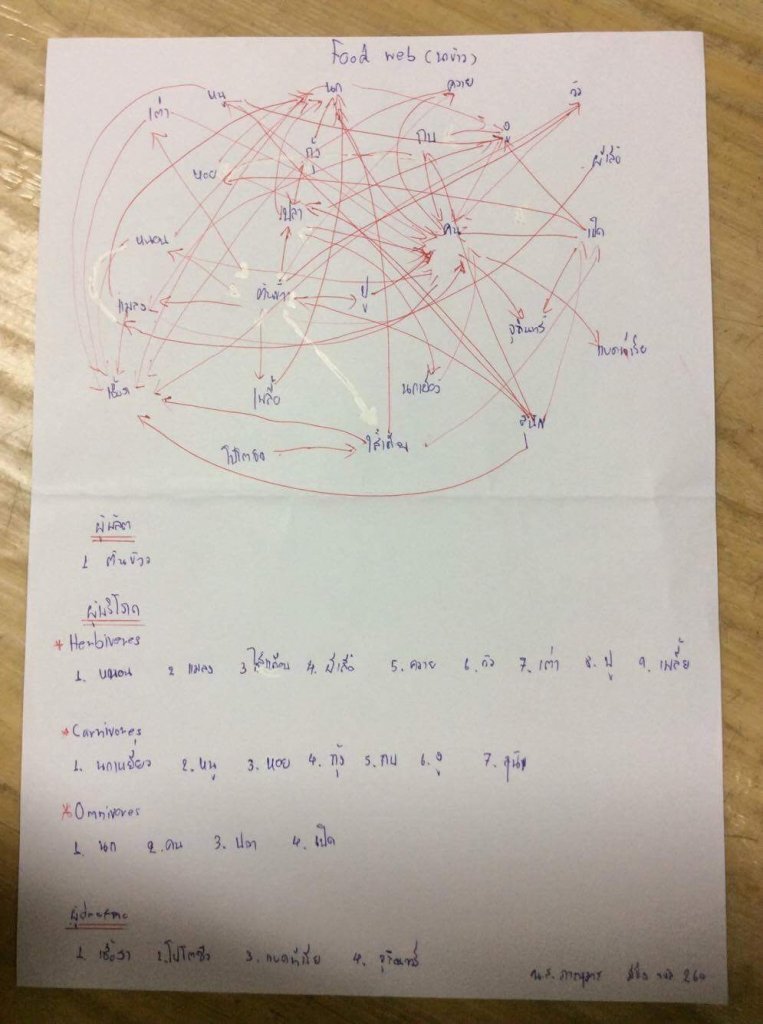 Food web (นาข้าว)
หนู นก ควาย วัว
เต่า
กุ้ง กบ งู
ผีเสื้อ
หอย
ปลา
หนอน คน เป็ด
ต้นข้าว ปู
แมลง
จุลินทรีย์
แบคทีเรีย
เชื้อรา เพลี้ย นกเหยี่ยว
สุนัข
โปรโตซัว ไส้เดือน
ผู้ผลิต
1 ต้นข้าว
ผู้บริโภค
* Herbivores
1. หนอน 2 แมลง 3 ไส้เดือน 4. ผีเสื้อ 5. ควาย 6. วัว 7. เต่า 8. ปู 9. เพลี้ย
* Carnivores
1. นกเหยี่ยว 2. หนู 3. หอย 4. กุ้ง 5. กบ 6. งู 7. สุนัข
* Omnivores
1. นก 2. คน 3. ปลา 4. เป็ด
1. เชื้อรา 2. โปรโตซัว 3. แบคทีเรีย 4. จุลินทรีย์
น.ส.